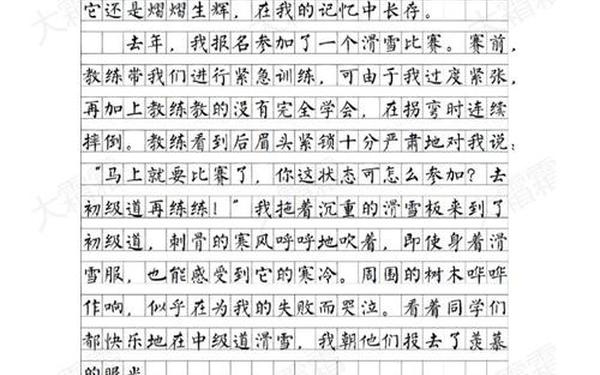 它还是熠熠生辉，在我的记忆中长存。
去年，我报名参加了一个滑雪比赛。赛前，
教练带我们进行紧急训练，可由于我过度紧张，
再加上教练教的没有完全学会，在拐弯时连续
摔倒。教练看到后眉头紧锁十分严肃地对我说：
“马上就要比赛了，你这状态可怎么参加？去
初级道再练练！”我拖着沉重的滑雪板来到了
初级道，刺骨的寒风呼呼地吹着，即使身着滑
雪服，也能感受到它的寒冷。周围的树木哗哗
作响，似乎在为我的失败而哭泣。看着同学们
都快乐地在中级道滑雪，我朝他们投去了羡慕
的眼光